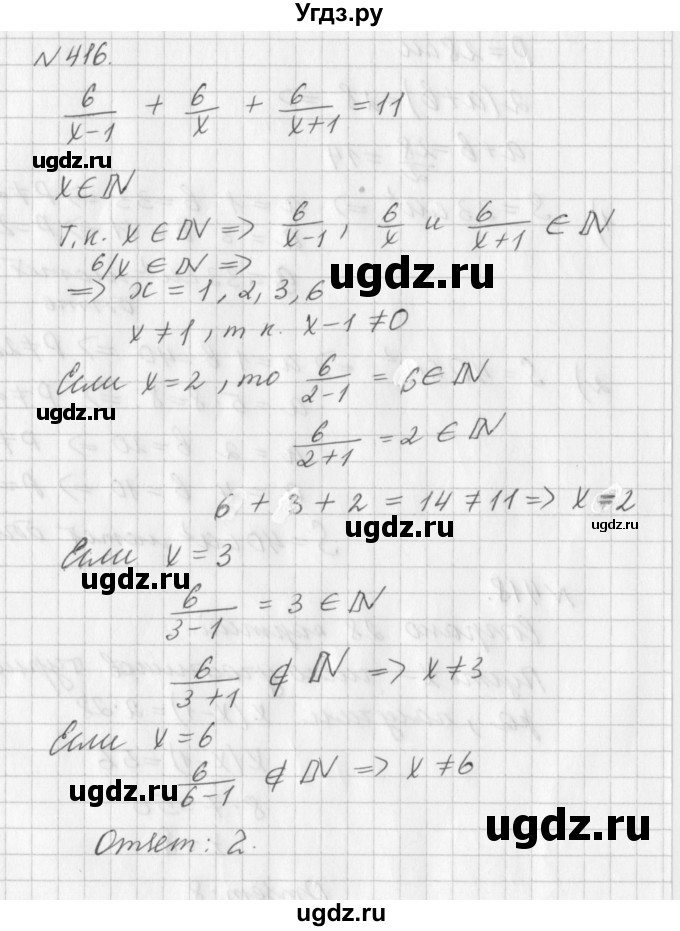 Угдз.ру
N 416.
6/(x-1) + 6/x + 6/(x+1) = 11
ugdz.ru
x ∈ ℕ
Т.к. x ∈ ℕ => 6/(x-1), 6/x и 6/(x+1) ∈ ℕ
ugdz.ru
6/x ∈ ℕ =>
ugdz.ru
=> x = 1, 2, 3, 6
x ≠ 1, т к. x-1 ≠ 0
Если x = 2, то 6/(2-1) = 6 ∈ ℕ
ugdz.ru
6/(2+1) = 2 ∈ ℕ
ugdz.ru
6 + 3 + 2 = 14 ≠ 11 => x = 2
ugdz.ru
ugdz.ru
Если x = 3
ugdz.ru
6/(3-1) = 3 ∈ ℕ
ugdz.ru
6/(3+1) ∉ ℕ => x ≠ 3
ugdz.ru
Если x = 6
6/(6-1) ∉ ℕ => x ≠ 6
ugdz.ru
ugdz.ru
Ответ: 2.
ugdz.ru